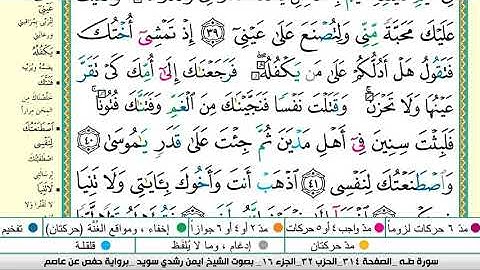 عَلَيْكَ مَحَبَّةً مِّنِّي وَلِتُصْنَعَ عَلَىٰ عَيْنِيٓ ٣٩ إِذْ تَمْشِيٓ أُخْتُكَ
فَتَقُولُ هَلْ أَدُلُّكُمْ عَلَىٰ مَن يَكْفُلُهُۥ فَرَجَعْنَٰكَ إِلَىٰٓ أُمِّكَ كَيْ تَقَرَّ
عَيْنُهَا وَلَا تَحْزَنَ وَقَتَلْتَ نَفْسًا فَنَجَّيْنَٰكَ مِنَ ٱلْغَمِّ وَفَتَنَّٰكَ فُتُونًا
فَلَبِثْتَ سِنِينَ فِيٓ أَهْلِ مَدْيَنَ ثُمَّ جِئْتَ عَلَىٰ قَدَرٍ يَٰمُوسَىٰ ٤٠
وَٱصْطَنَعْتُكَ لِنَفْسِي ٤١ ٱذْهَبْ أَنتَ وَأَخُوكَ بِـَٔايَٰتِي وَلَا تَنِيَا
يَكْفُلُهُ
فَتَنَّاكَ
اصْطَنَعْتُكَ لِنَفْسِي
لَا تَنِيَا
مدّ ٦ حركات لزوماً مدّ واجب ٤ أو ٥ حركات مدّ ٢ أو ٤ أو ٦ جوازاً إخفاء، ومواقع الغُنَّة (حركتان) تفخيم
مدّ حركتان إدغام، وما لا يُلفَظ قلقلة
سورة طه_ الصفحة ٣١٤_ الحزب ٣٢_ الجزء ١٦_ بصوت الشيخ ايمن رشدي سويد_ برواية حفص عن عاصم